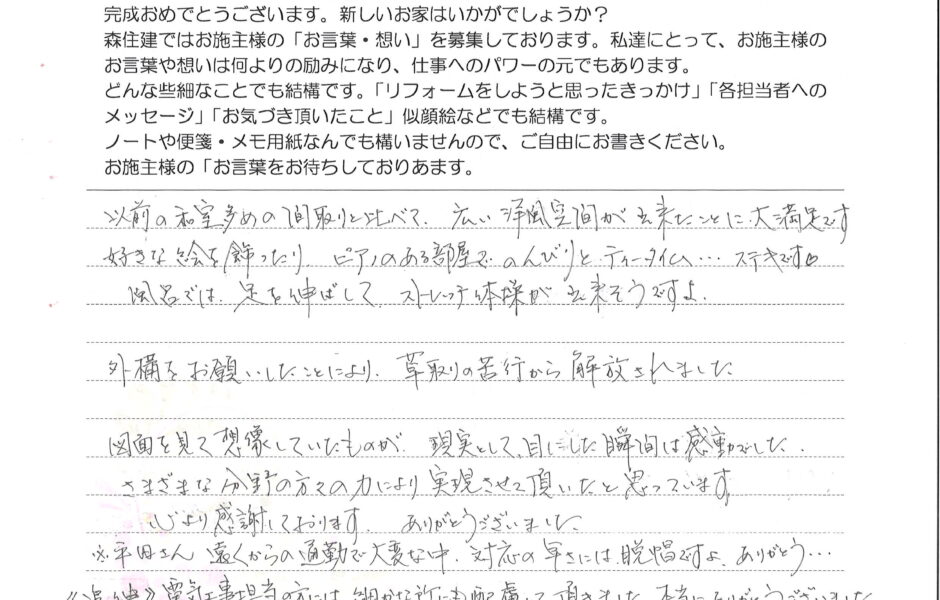 完成おめでとうございます。新しいお家はいかがでしょうか？
森住建ではお施主様の「お言葉・想い」を募集しております。私達にとって、お施主様の
お言葉や想いは何よりの励みになり、仕事へのパワーの元でもあります。
どんな些細なことでも結構です。「リフォームをしようと思ったきっかけ」「各担当者への
メッセージ」「お気づき頂いたこと」似顔絵などでも結構です。
ノートや便箋・メモ用紙なんでも構いませんので、ご自由にお書きください。
お施主様の「お言葉をお待ちしておりあます。
以前の和室多めの間取りと比べて、広い洋風空間が出来たことに大満足です
好きな絵を飾ったり、ピアノのある部屋でのんびりとティータイム…ステキです♡
風呂では、足を伸ばして、ストレッチ体操が出来そうですよ。
外構をお願いしたことにより、草取りの苦行から解放されました
図面を見て想像していたものが、現実として、目にした瞬間は感動でした。
さまざまな分野の方々の力により実現させて頂いたと思っています
心より感謝しております。ありがとうございました。
※平田さん 遠くからの通勤で大変な中、対応の早さには脱帽ですよ、ありがとう…
電気工事担当の方には、細かな所にも配慮して頂きました。本当にありがとうございました